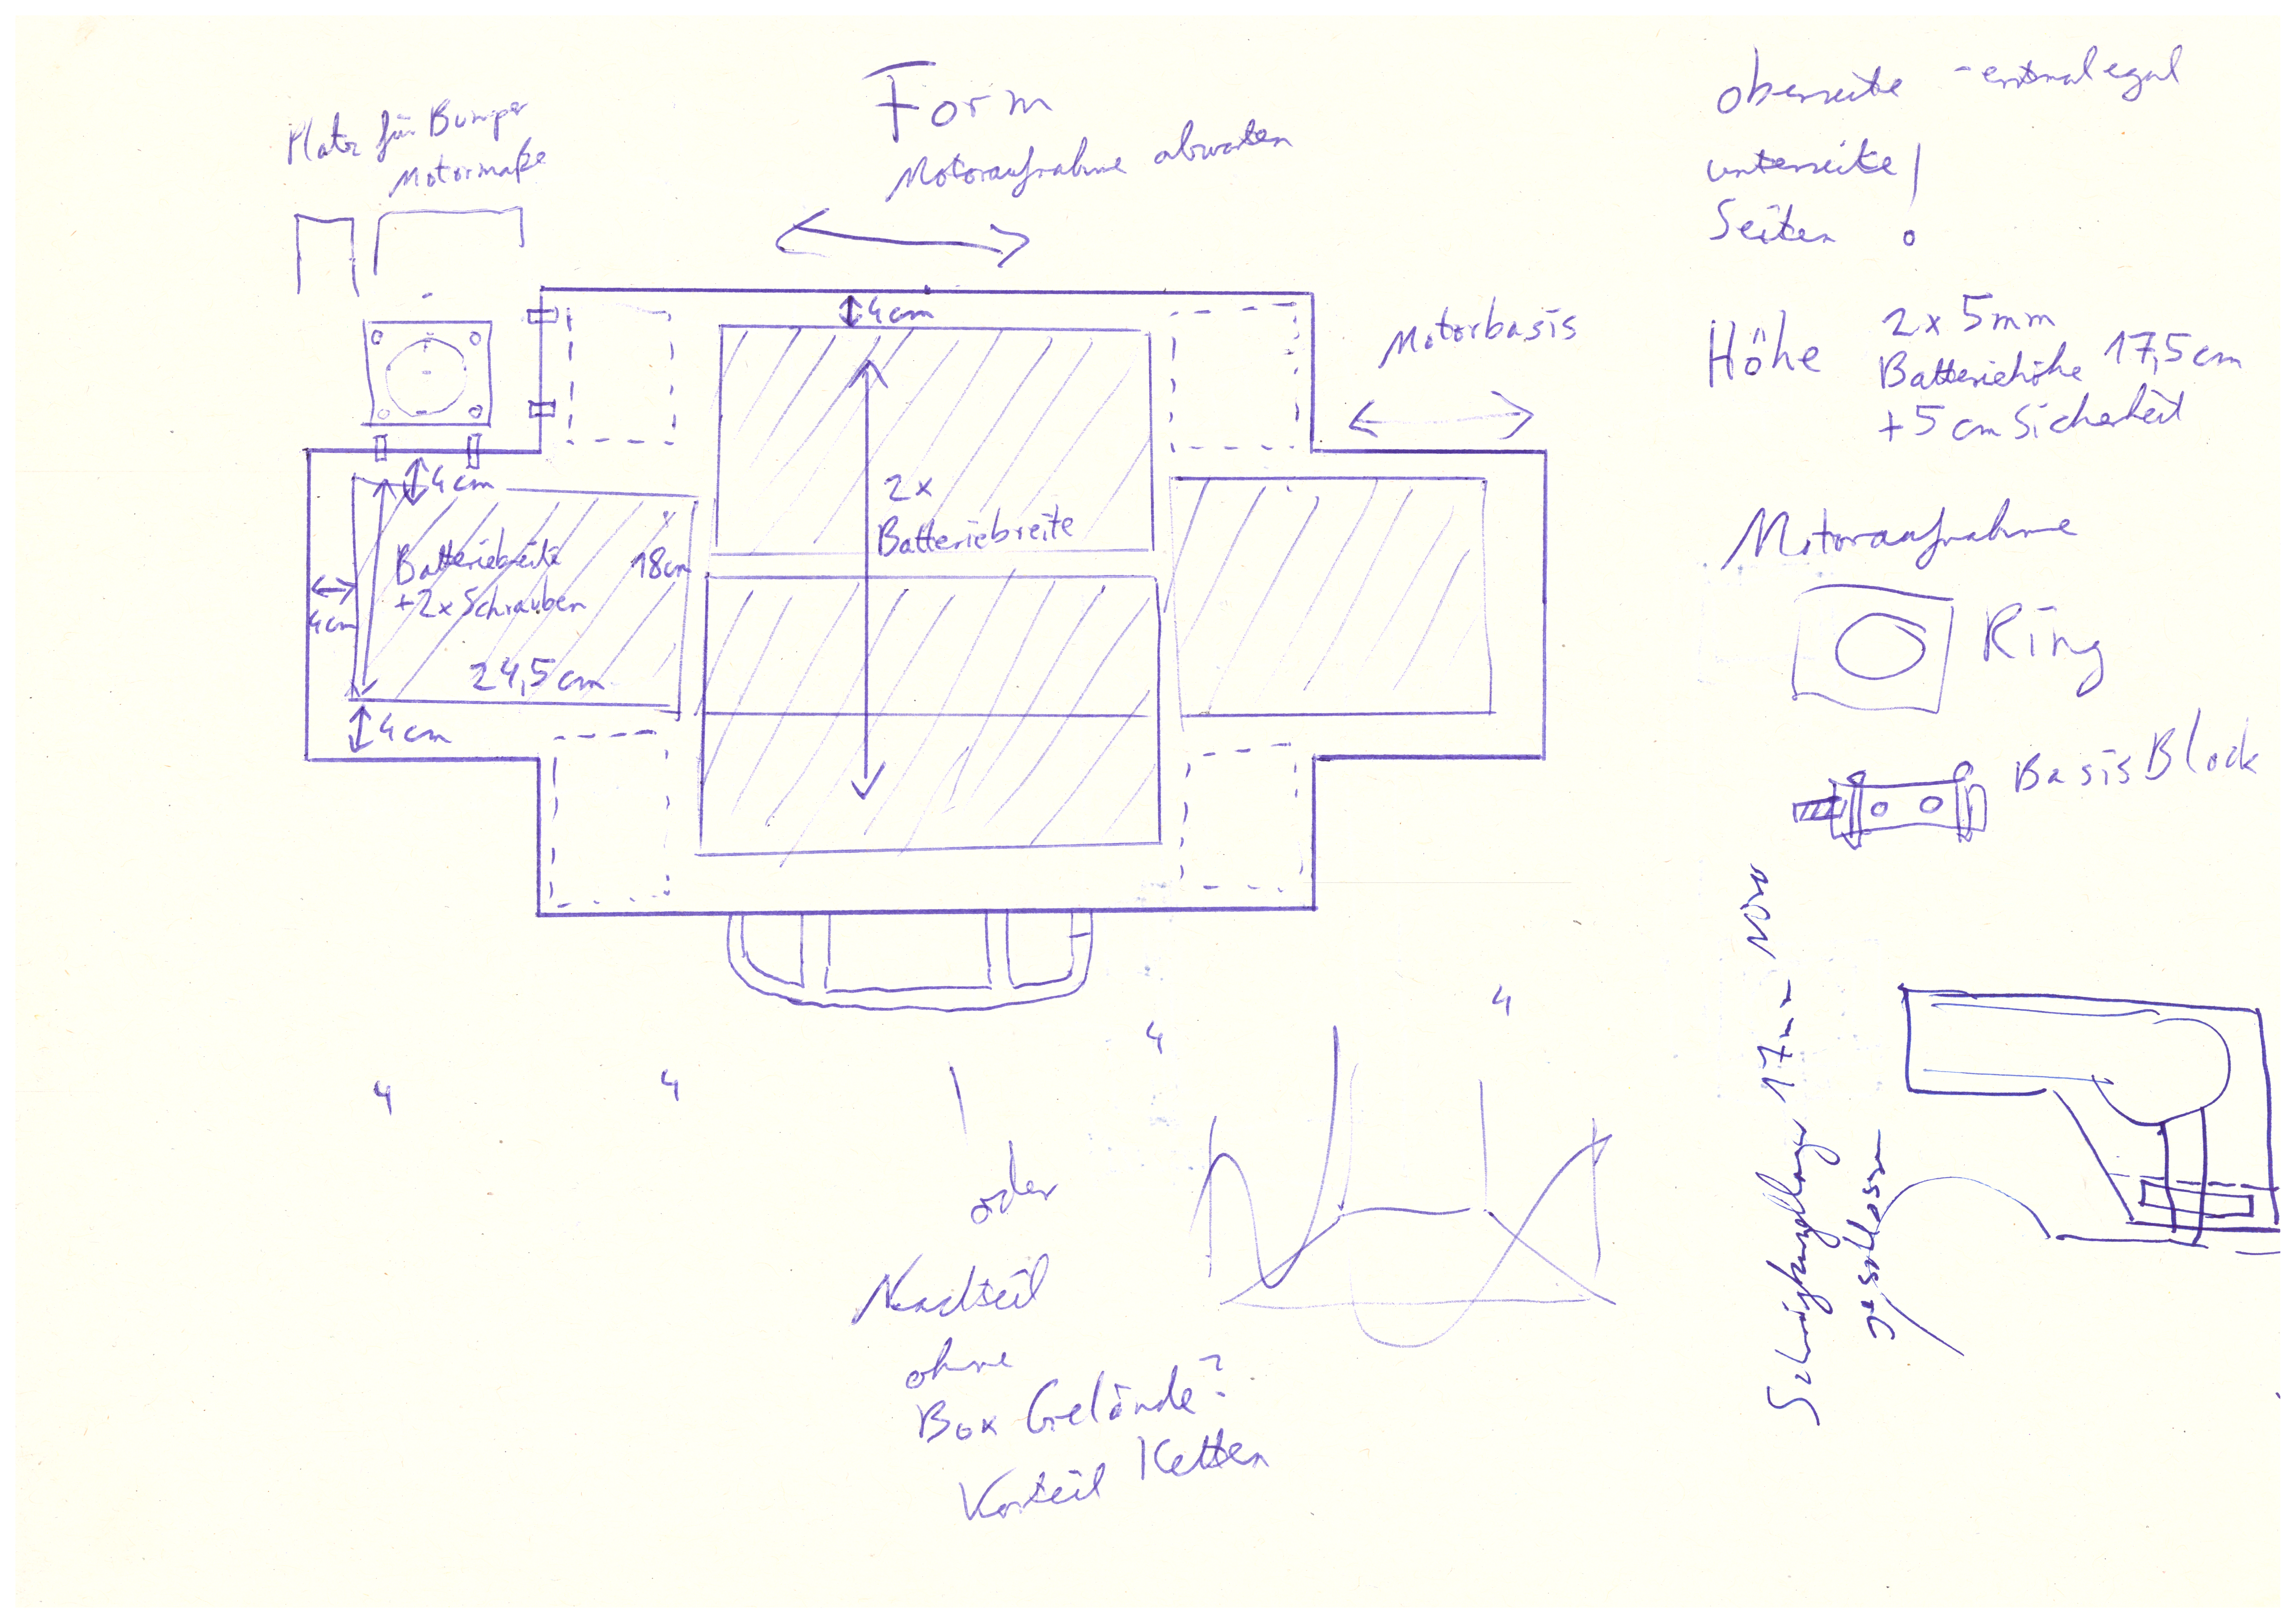 Form
Motoraufnahme abwarten
Platz für Bumper
Motormaße
4cm
Motorbasis
4cm
2x
Batteriebreite
Batteriebreite
+2x Schrauben
18cm
4cm
24,5cm
4cm
4
4
4
4
oder
Nachteil
ohne
Box Gelände?
Vorteil Ketten
oberseite - erstmal egal
unterseite!
Seiten
Höhe
2x 5mm
Batteriehöhe 17,5cm
+5cm Sicherheit
Motoraufnahme
Ring
Basis Block
17mm
geschlossen